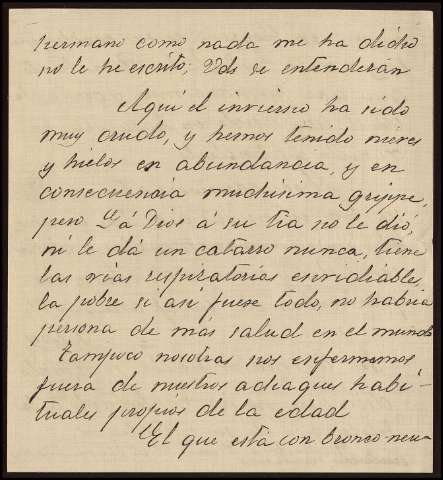 hermano como nada me ha dicho
no le he escrito; Vds se entenderán
Aquí el invierno ha sido
muy crudo, y hemos tenido nieves
y hielos en abundancia, y en
consecuencia muchisima grippe,
pero á Dios á su tia no le dió,
ni le dá un catarro nunca, tiene
las vias respiratorias envidiables,
la pobre si asi fuese todo, no habria
persona de más salud en el mundo
Tampoco nosotras nos enfermamos
fuera de nuestros achaques habi-
tuales propios de la edad
El que está con bronco-neu-